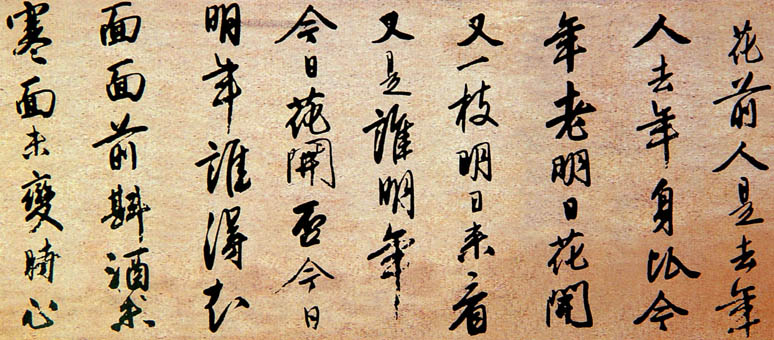 花前人是去年
人去年身比今
年老明日花開
又一枝明日來看
又是誰明年
今日花開否今日
明年誰得知
面面前斟酒未
寒面未變時心